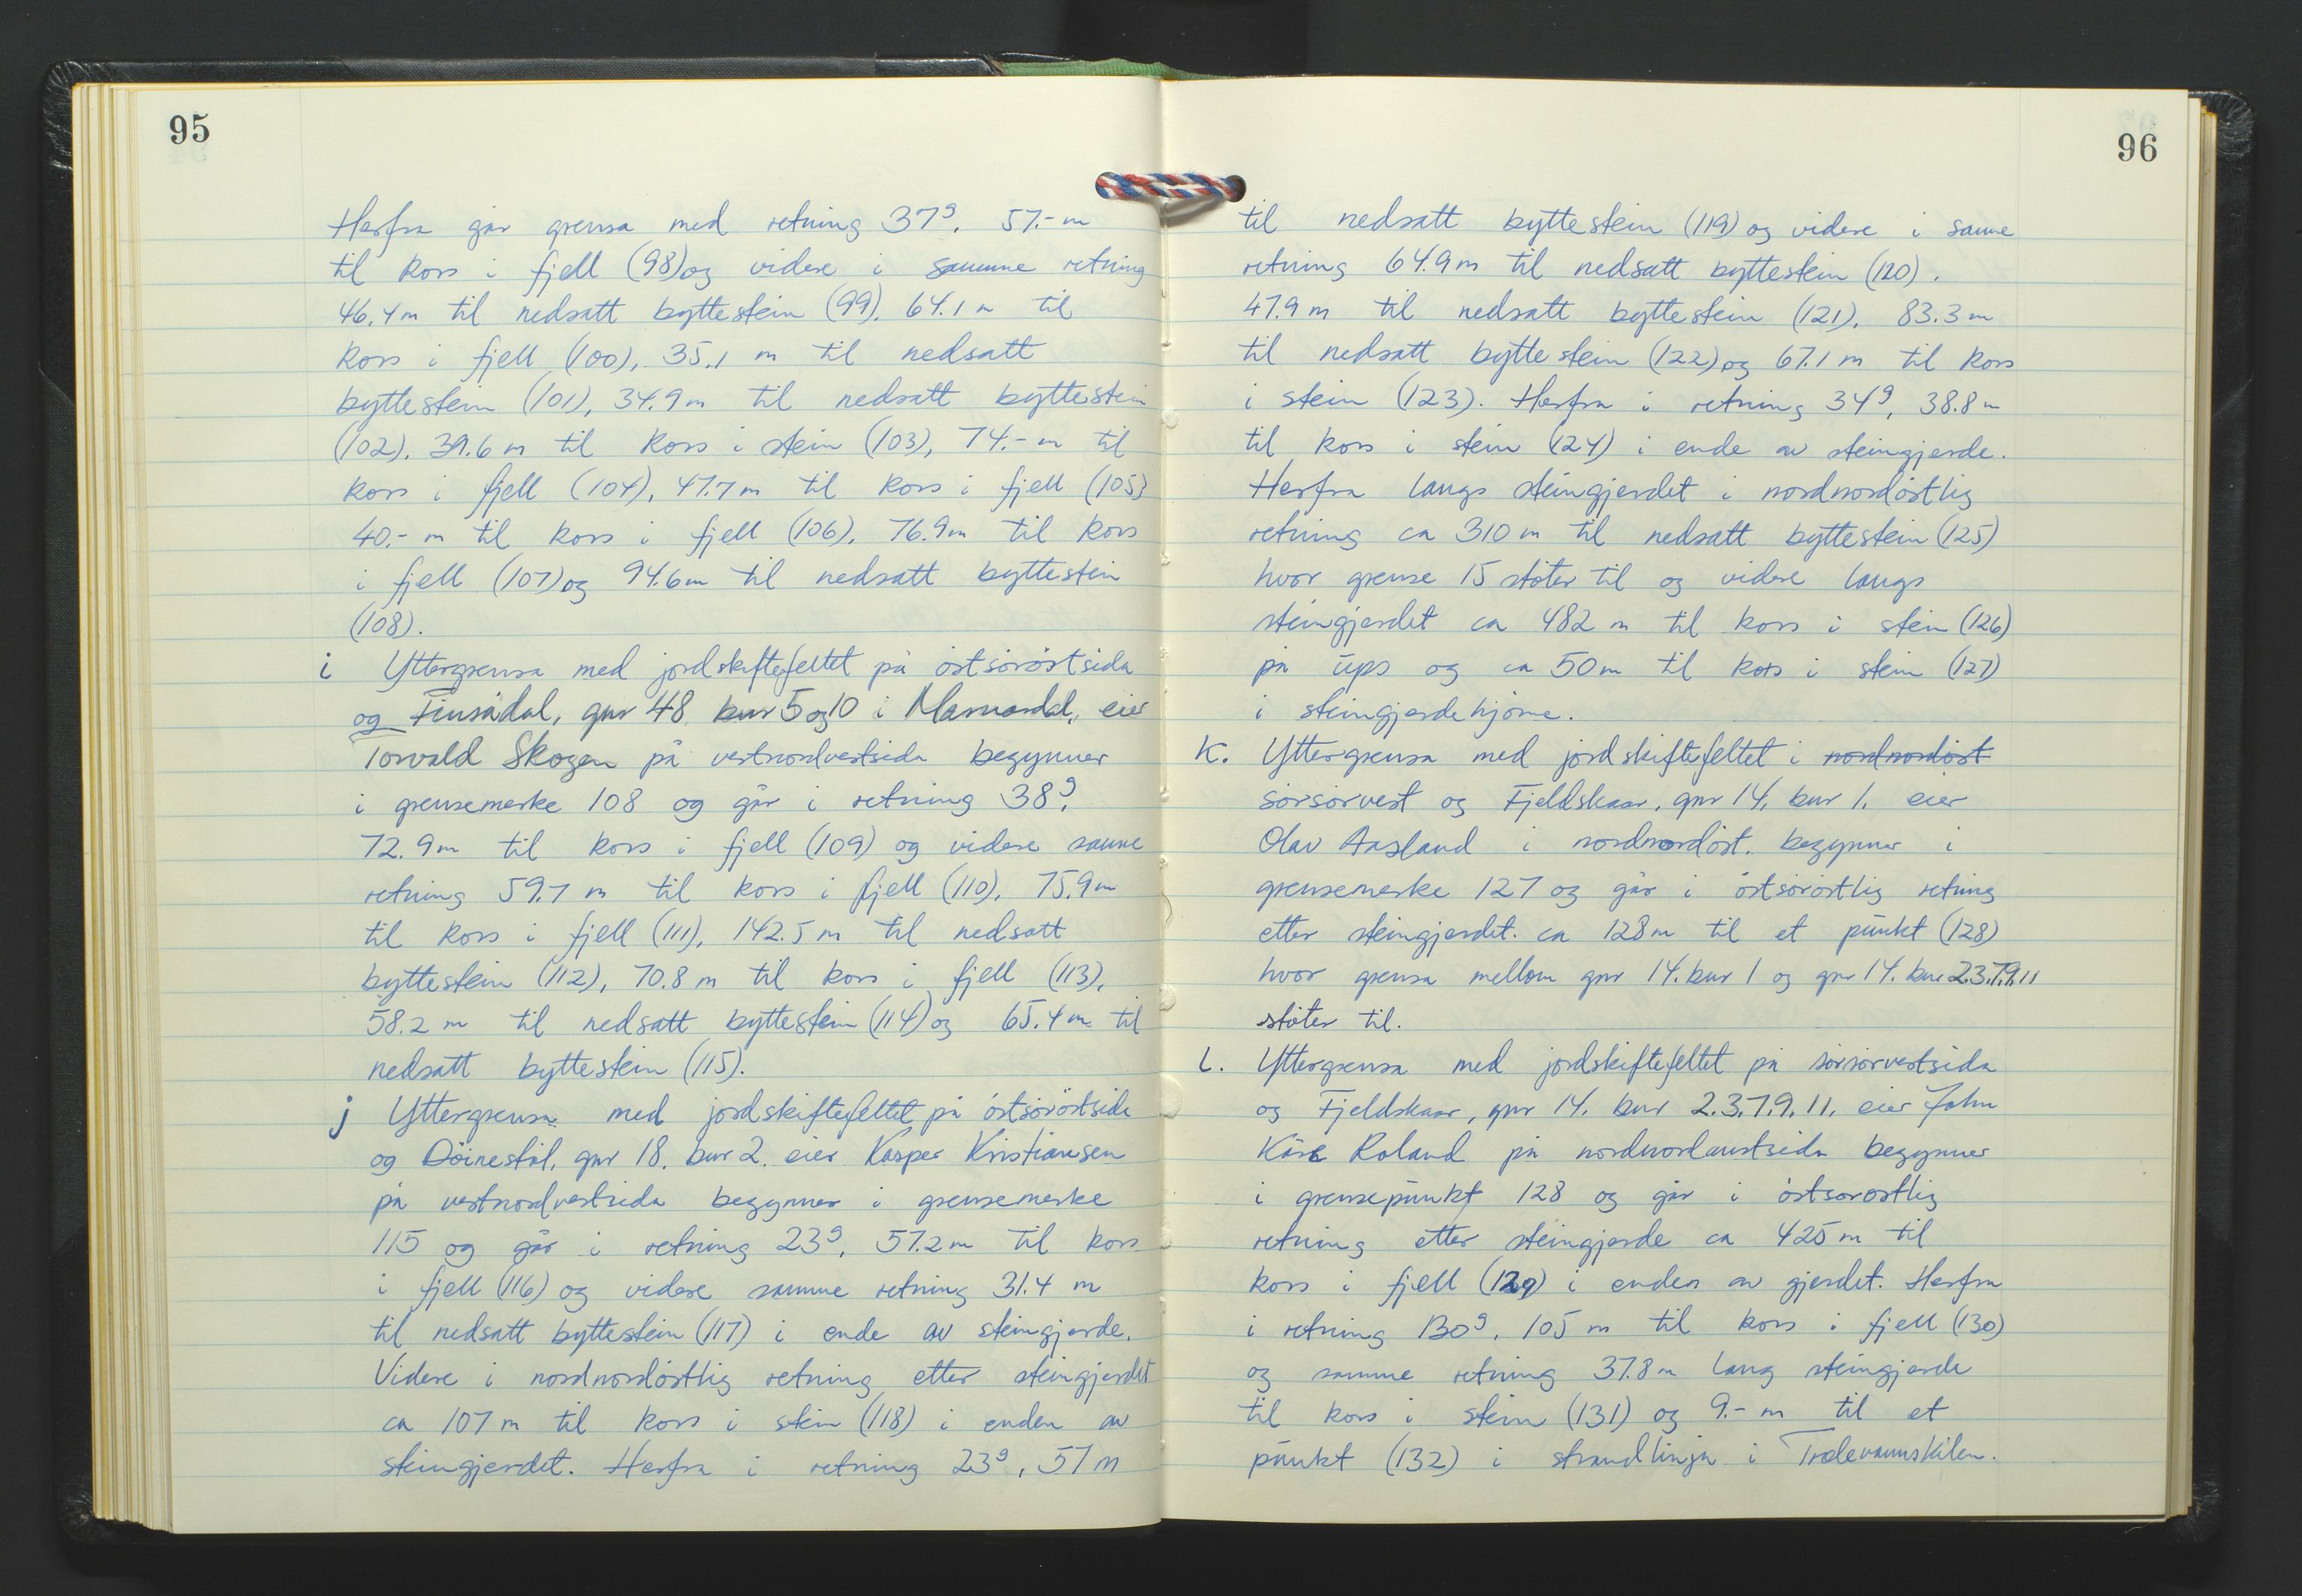 95
Herfra går grensa med retning 37g, 57.- m
til kors i fjell (98) og videre i samme retning
46.4 m til nedsatt byttestein (99), 64.1 m til
kors i fjell (100), 35.1 m til nedsatt
byttestein (101), 34.9 m til nedsatt byttestein
(102), 39.6 m til kors i stein (103), 74.- m til
kors i fjell (104), 47.7 m til kors i fjell (105)
40.- m til kors i fjell (106), 76.9 m til kors
i fjell (107) og 94.6 m til nedsatt byttestein
(108).
i Yttergrensa med jordskiftefeltet på östsöröstsida
og Finsådal, gnr 48 bnr 5 og 10 i Marnardal, eier
Torvald Skogen på vestnordvestsida begynner
i grensemerke 108 og går i retning 38g,
72.9 m til kors i fjell (109) og videre samme
retning 59.7 m til kors i fjell (110), 75.9 m
til kors i fjell (111), 142.5 m til nedsatt
byttestein (112), 70.8 m til kors i fjell (113),
58.2 m til nedsatt byttestein (114) og 65.4 m til
nedsatt byttestein (115).
j Yttergrensa med jordskiftefeltet på östsöröstside
og Döinestöl, gnr 18, bnr 2. eier Kasper Kristiansen
på vestnordvestsida begynner i grensemerke
115 og går i retning 23g, 57.2 m til kors
i fjell (116) og videre samme retning 31.4 m
til nedsatt byttestein (117) i ende av steingjerde.
Videre i nordnordöstlig retning etter steingjerdet
ca 107 m til kors i stein (118) i enden av
steingjerdet. Herfra i retning 23g, 57 m
96
til nedsatt byttestein (119) og videre i samme
retning 64.9 m til nedsatt byttestein (120).
47.9 m til nedsatt byttestein (121), 83.3 m
til nedsatt byttestein (122) og 67.1 m til kors
i stein (123). Herfra i retning 34g, 38.8 m
til kors i stein (124) i ende av steingjerde.
Herfra langs steingjerdet i nordnordöstlig
retning ca 310 m til nedsatt byttestein (125)
hvor grense 15 stöter til og videre langs
steingjerdet ca 482 m til kors i stein (126)
på ups og ca 50 m til kors i stein (127)
i steingjerdehjörne.
K. Yttergrensa med jordskiftefeltet i nordnordöst
sörsörvest og Fjeldskaar, gnr 14, bnr 1. eier
Olav Aasland i nordnordöst. begynner i
grensemerke 127 og går i östsöröstlig retning
etter steingjerdet. ca 128 m til et punkt (128)
hvor grensa mellom gnr 14. bnr 1 og gnr 14. bnr 2.3.7.9.11
stöter til.
L. Yttergrensa med jordskiftefeltet på sörsörvestsida
og Fjeldskaar, gnr 14. bnr 2.3.7.9.11. eier John
Kåre Roland på nordnordaustsida begynner
i grensepunkt 128 og går i östsöröstlig
retning etter steingjerde ca 425 m til
kors i fjell (129) i enden av gjerdet. Herfra
i retning 130g, 105 m til kors i fjell (130)
og samme retning 37.8 m lang steingjerde
til kors i stein (131) og 9.- m til et
punkt (132) i strandlinja i Trælevannskilen.